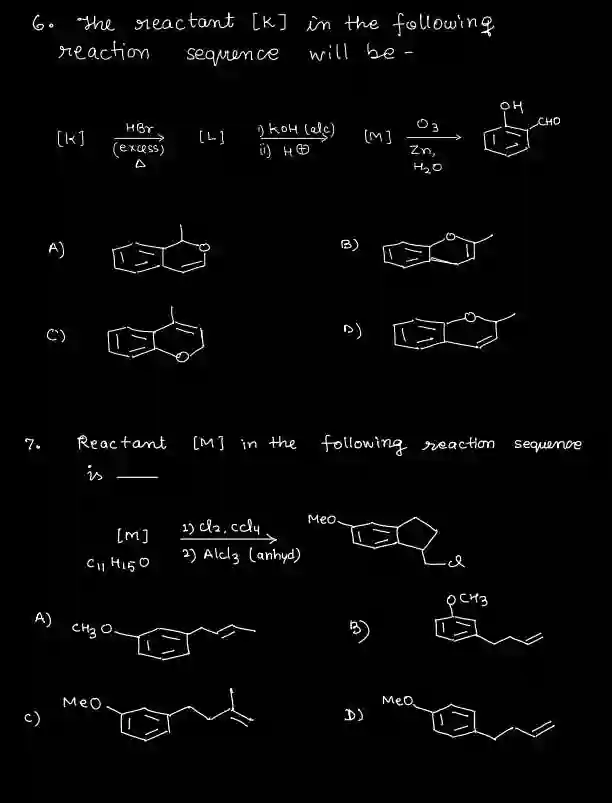 6. The reactant [K] in the following
reaction sequence will be -
[K] HBr (excess) Δ [L] i) KOH (alc) ii) H⊕ [M] O3 Zn, H2O OH CHO
A) O
B) O
C) O
D) O
7. Reactant [M] in the following reaction sequence
is ___
[M] C11H15O 1) Cl2, CCl4 2) AlCl3 (anhyd) MeO Cl
A) CH3O
B) OCH3
C) MeO
D) MeO